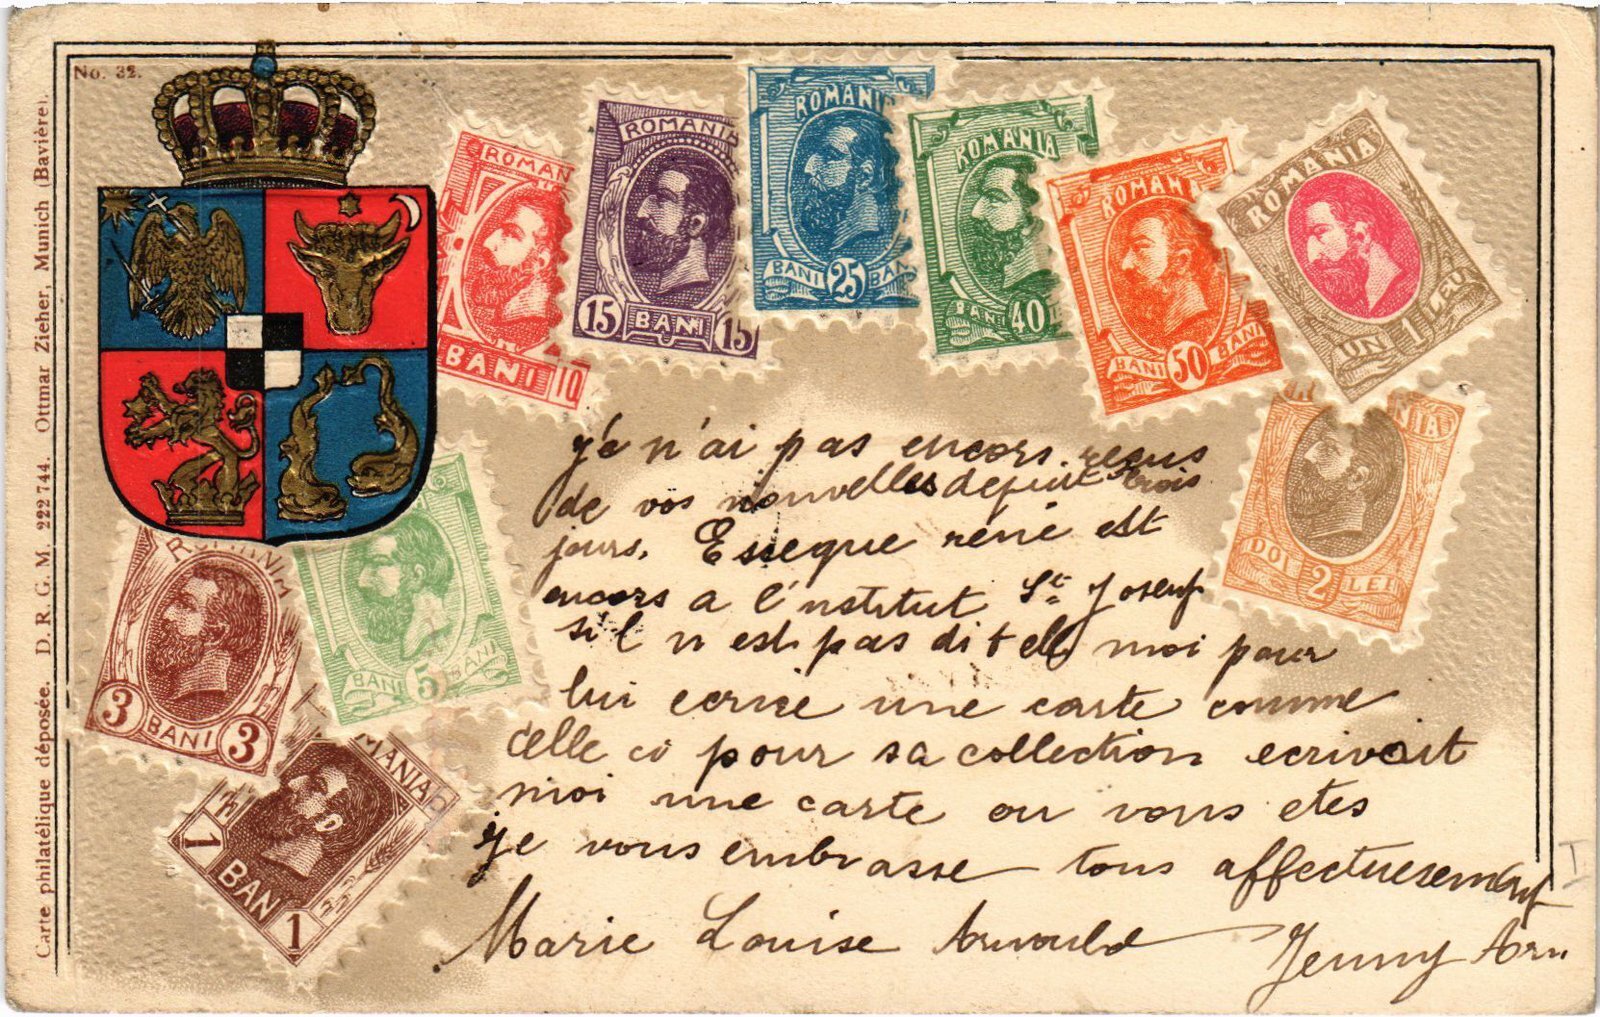 No. 32.
Carte philatélique déposée. D. R. G. M. 222744. Ottmar Zieher, Munich (Bavière).
ROMAN
BANI 10
ROMANIA
15 BANI 15
ROMANI
BANI 25 BAN
ROMANIA
BANI 40
ROMANI
BANI 50 BANI
ROMANIA
UN 1 LEU
NIA
DOI 2 LEI
ROMANI
3 BANI 3
BANI 5 BANI
MANIA
1 BAN 1
je n'ai pas encors reçus
de vos nouvelles depuit trois
jours. Esseque réné est
encors a l'institut St Joseph
si'l n'est pas dit elle moi pour
lui ecrire une carte comme
celle ci pour sa collection ecrivait
moi une carte ou vous etes
je vous embrasse tous affectuesement
Marie Louise Arnould Jenny Arn